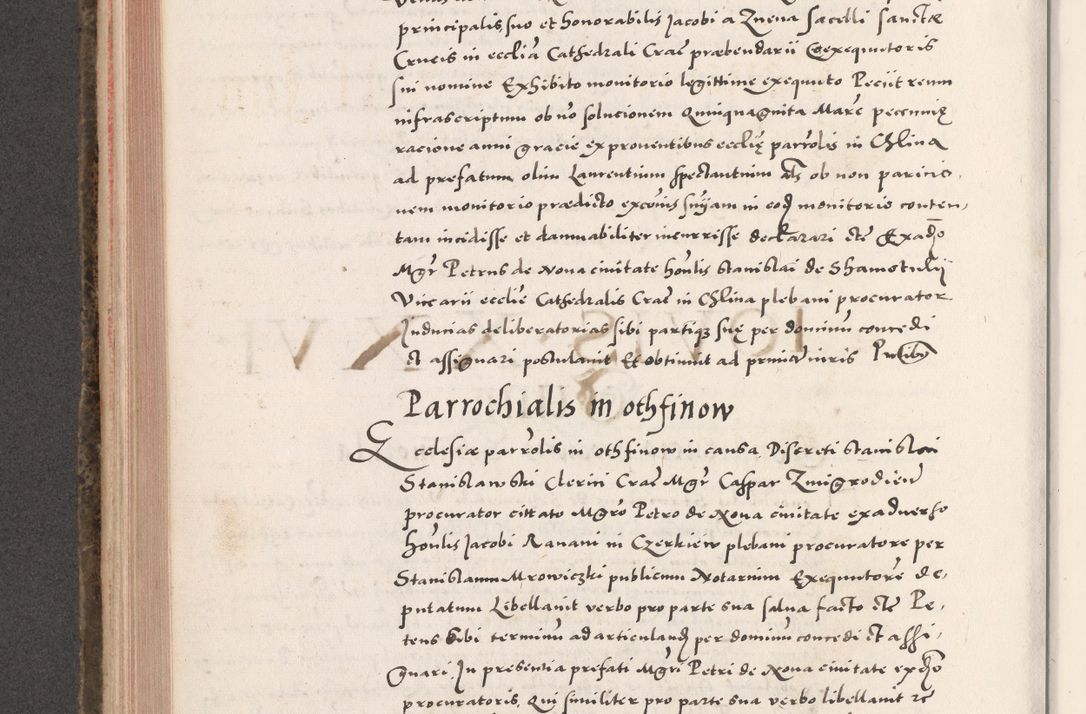 principalis suo et honorabilis Jacobi a Znena sacelli sanctæ
Crucis in eccliā Cathedrali Crac præbendarii Coexequutoris
sui nomine Exhibito monitorio legittime exequuto Peciit reum
infrascriptum ob nō solucionem Quinquaginta Marc peccunię
racione anni gracie ex proventibus ecclię parrolis in Chlina
ad prefatum olim Laurentium spectantium als ob non paricio
nem monitorio prædicto excōīs sniam in eod monitorio conten,
tam incidisse et damnabiliter incurrisse declarari etc Exadso
Mgr Petrus de Nova civitate honlis Stanislai de Shamotulij
Vicarii ecclie Cathedralis Crac in Chlina plebani procurator
Inducias deliberatorias sibi partiq3 suę per dominū concedi
et assignari postulavit Et obtinuit ad primā iuris Pntibus
Parrochialis in othfinow
Ecclesiæ parrolis in othfinow in causa Discreti Stanislai
Stanislawski Clerici Crac Mgr Caspar Zmigrodien
procurator cittato Mgro Petro de Nova civitate ex adverso
honlis Jacobi Ranani in Czerkiew plebani procuratore per
Stanislaum Mrowiczki publicum Notarium Exequutorē de,
putatum Libellavit verbo pro parte sua salva facto etc Pe,
tens Sibi terminū ad articuland per dominū concedi et assi,
gnari. In presentia prefati Mgri Petri de Nova civitate ex adso
procuratoris, Qui similiter pro parte sua verbo libellavit re